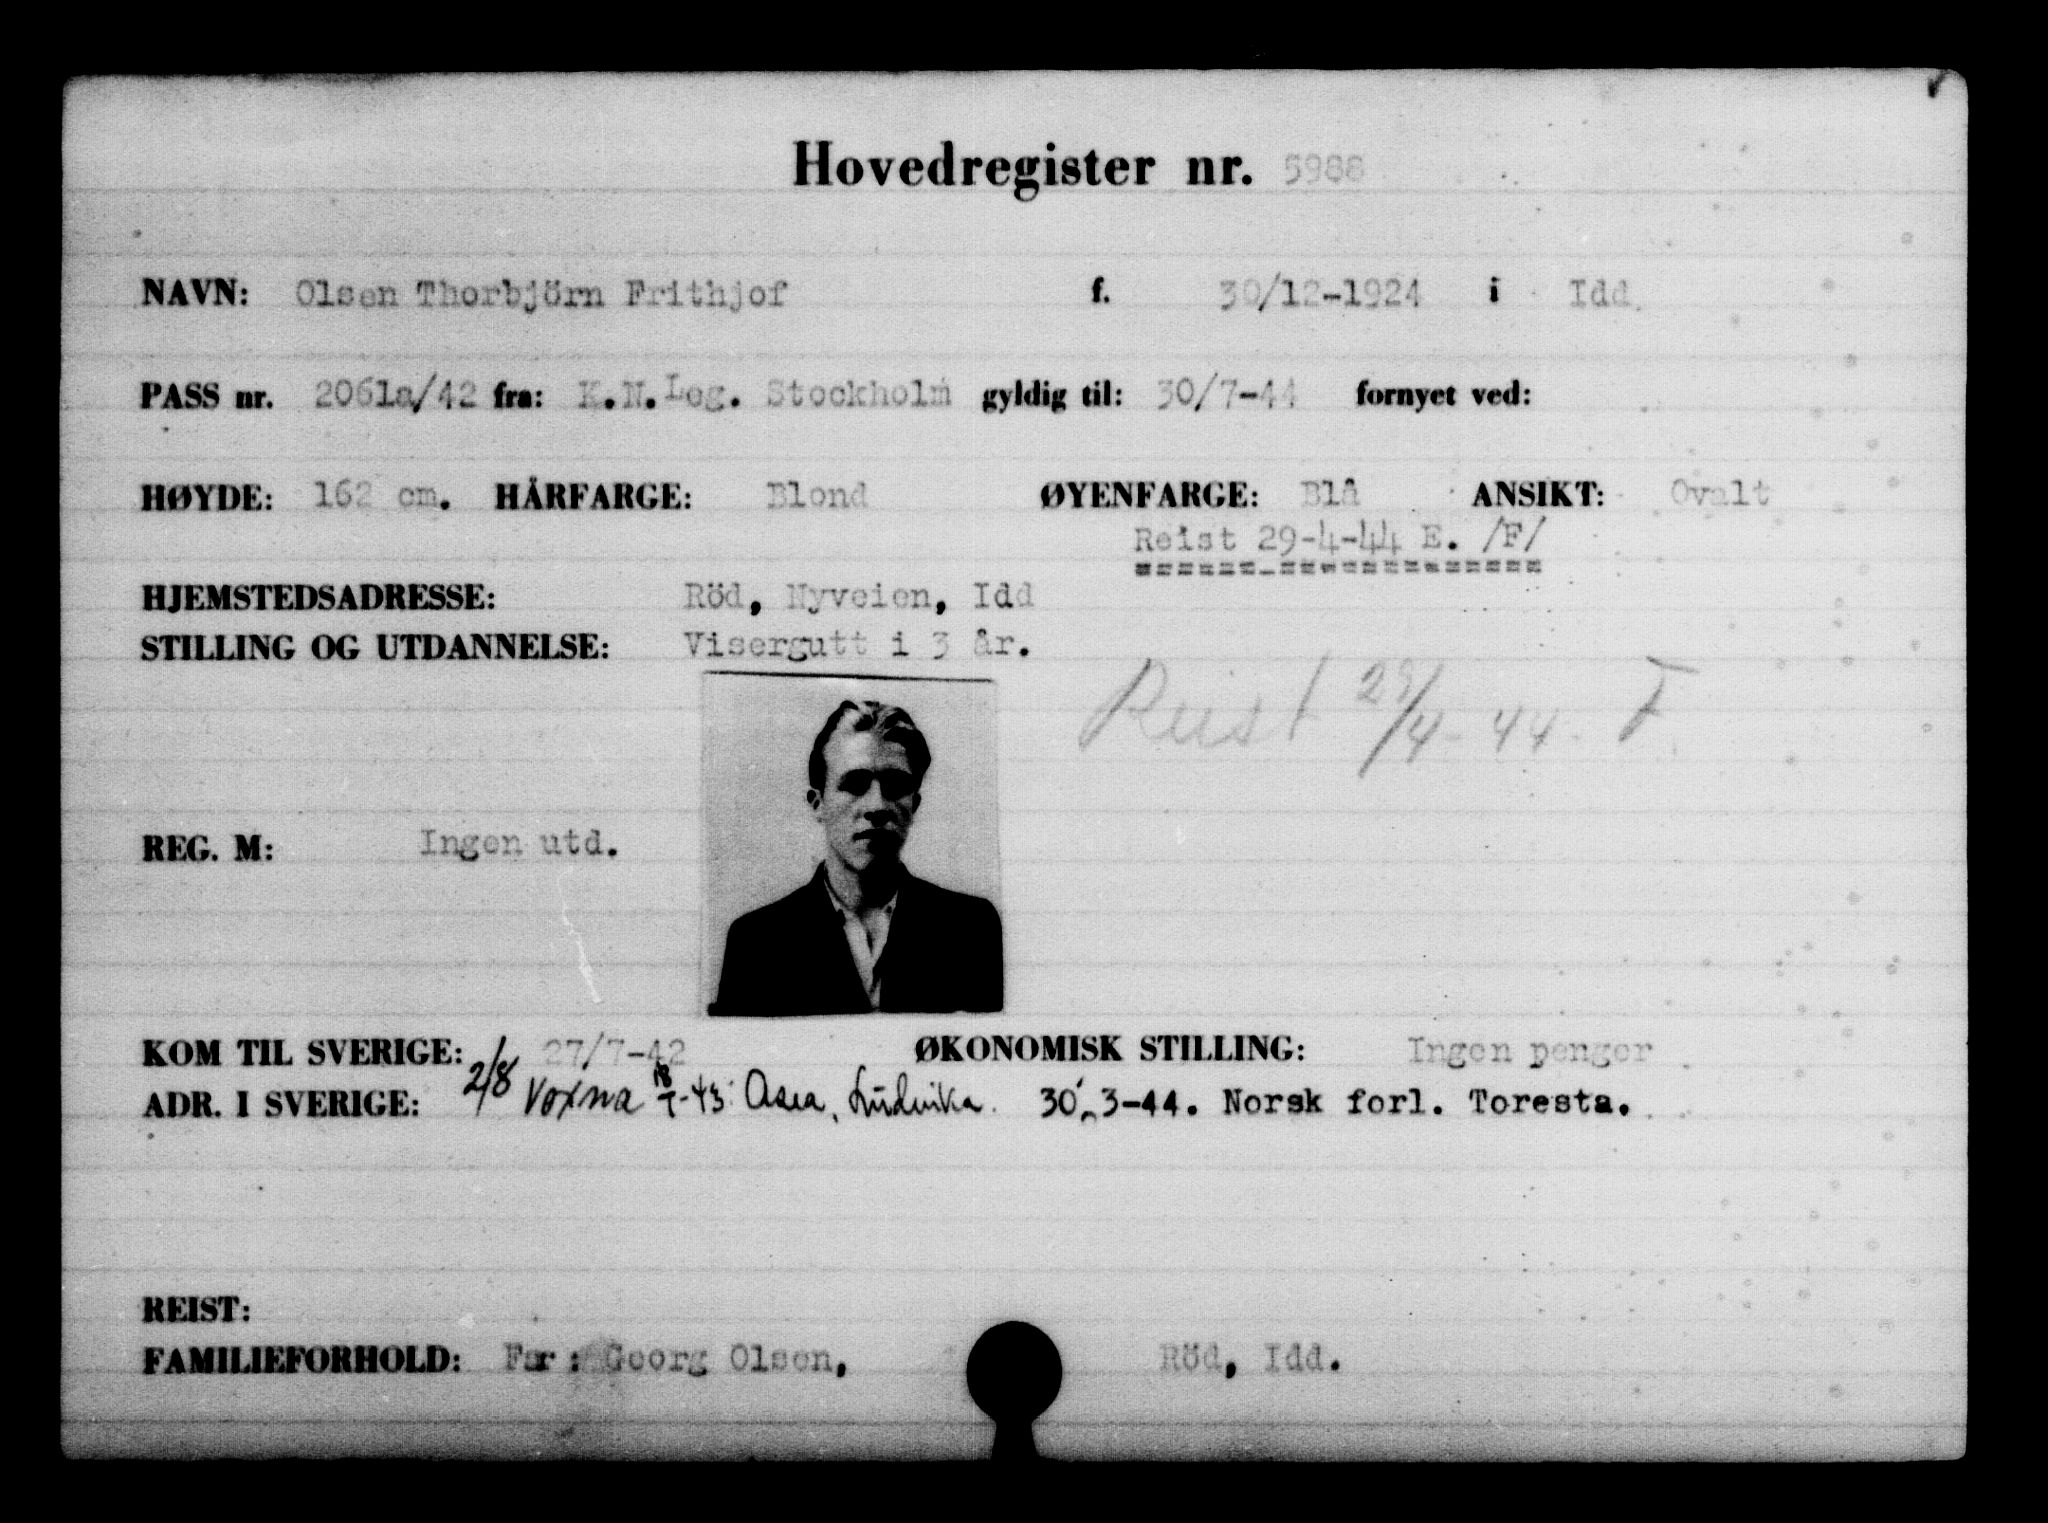 Hovedregister nr. 5988
NAVN: Olsen Thorbjörn Frithjof f. 30/12-1924 i Idd
PASS nr. 2061a/42 fra: K.N.Leg. Stockholm gyldig til: 30/7-44 fornyet ved:
HØYDE: 162 cm. HÅRFARGE: Blond ØYENFARGE: Blå ANSIKT: Ovalt
Reist 29-4-44 E. /F/
HJEMSTEDSADRESSE: Röd, Nyveien, Idd
STILLING OG UTDANNELSE: Visergutt i 3 år.
Reist 29/4-44- F
REG. M: Ingen utd.
KOM TIL SVERIGE: 27/7-42 ØKONOMISK STILLING: Ingen penger
ADR. I SVERIGE: 2/8 Voxna -43: Asea, Ludvika. 30.3-44. Norsk forl. Toresta.
REIST:
FAMILIEFORHOLD: Far: Georg Olsen, Röd, Idd.